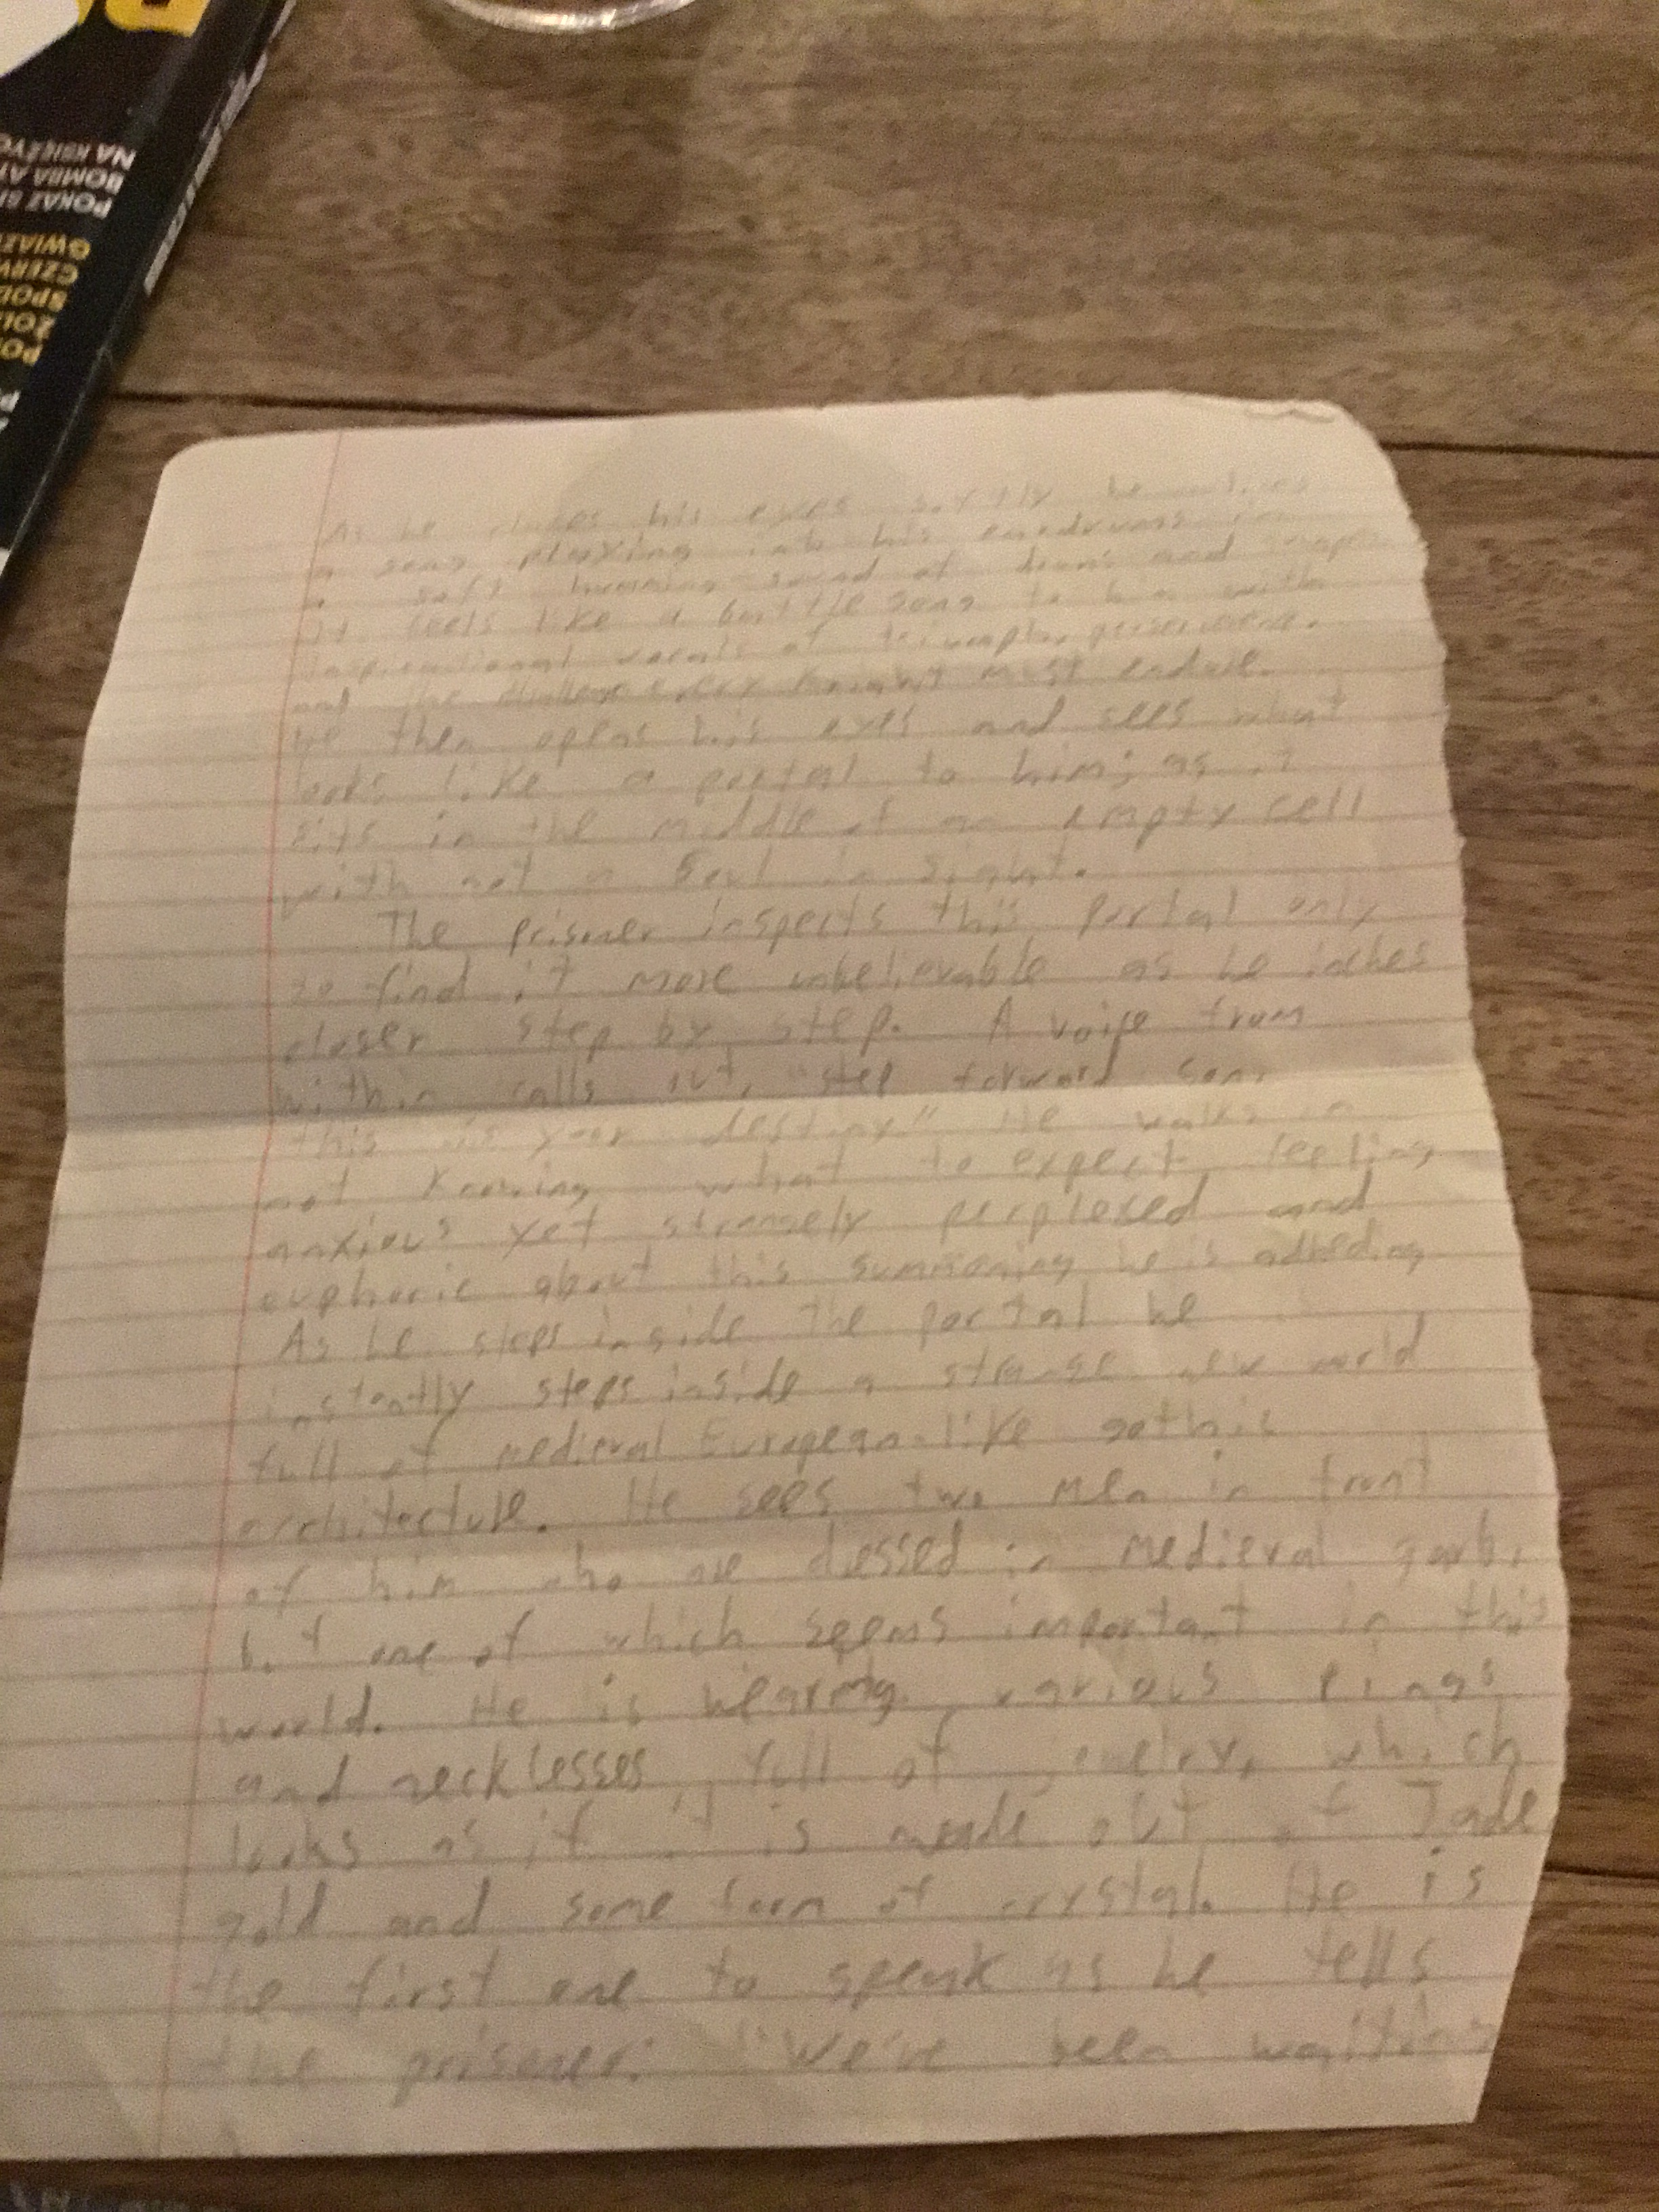 NA KSIĘŻYC
BOMBA AT
POKAZ
GWIAZ
CZERW
SPOD
ŻOŁ
As he closes his eyes softly he
a song playing into his eardrums
a soft humming sound of drums and
it feels like a battle song to him with
inspirational vocals of triumph, perseverance.
and the challenge every knight must endure.
He then opens his eyes and sees what
looks like a portal to him; as it
sits in the middle of an empty cell
with not a soul in sight.
The prisoner inspects this portal only
to find it more unbelievable as he inches
closer step by step. A voice from
within calls out, "step forward son,
this is your destiny" He walks in
not knowing what to expect, feeling
anxious yet strangely perplexed and
euphoric about this summoning he is adheding
As he steps inside the portal he
instantly steps inside a strange new world
full of medieval European-like gothic
architecture. He sees two men in front
of him who are dressed in medieval garb,
but one of which seems important in this
world. He is wearing various rings
and necklesses, full of jewelry, which
looks as if it is made out of Jade
gold and some form of crystal. He is
the first one to speak as he tells
the prisoner: "We've been waiting